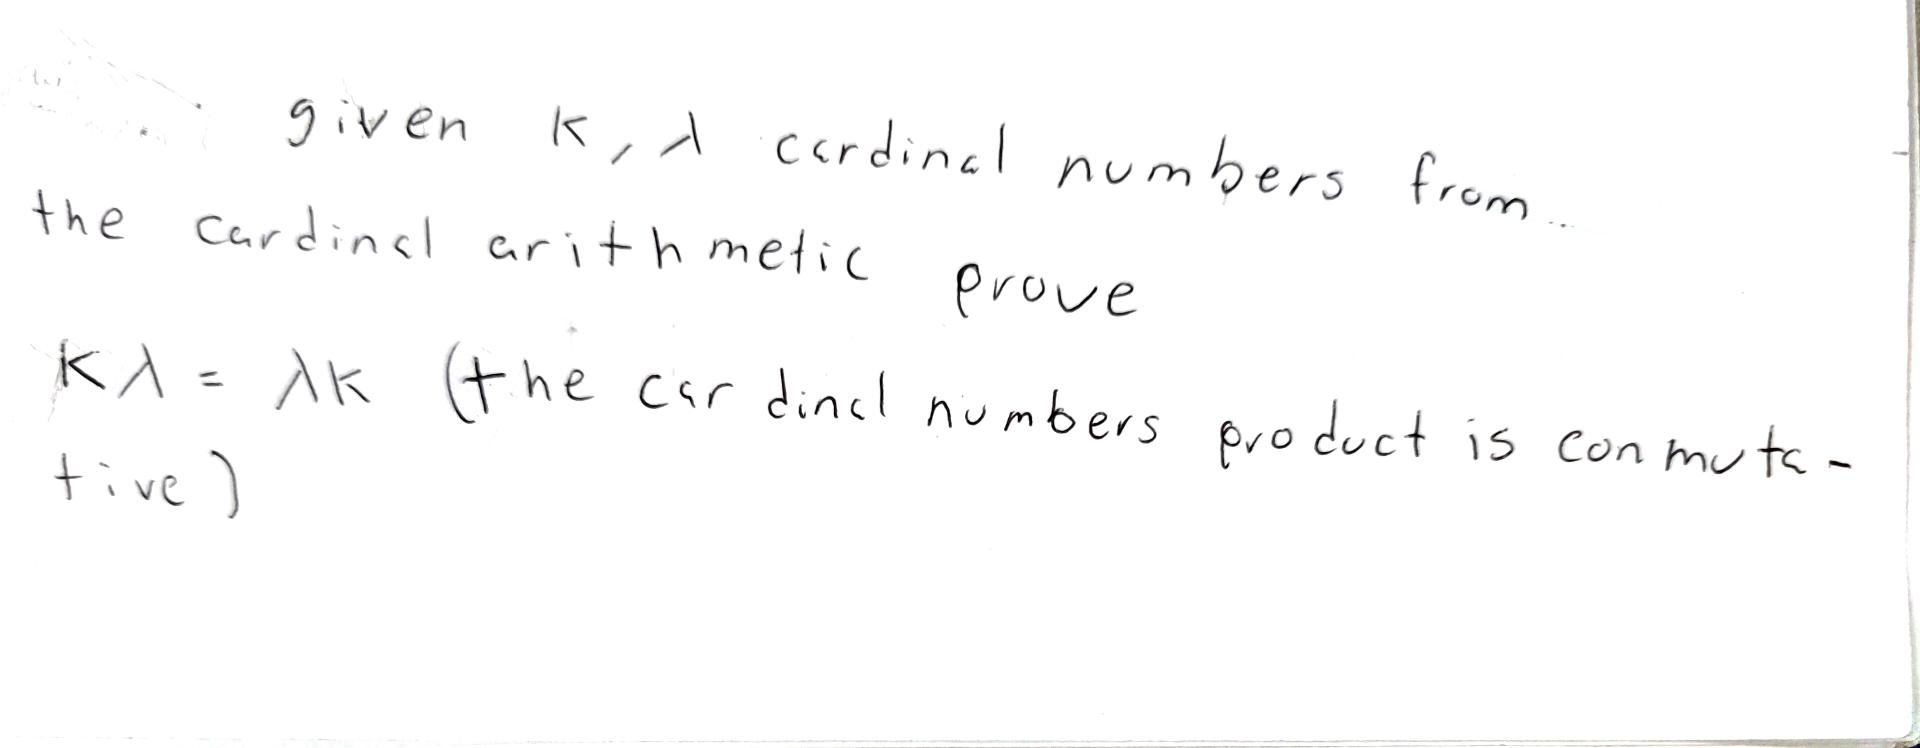 given K, λ cardinal numbers from...
the cardinal arithmetic prove
Kλ = λK (the cardinal numbers product is conmuta-
tive)